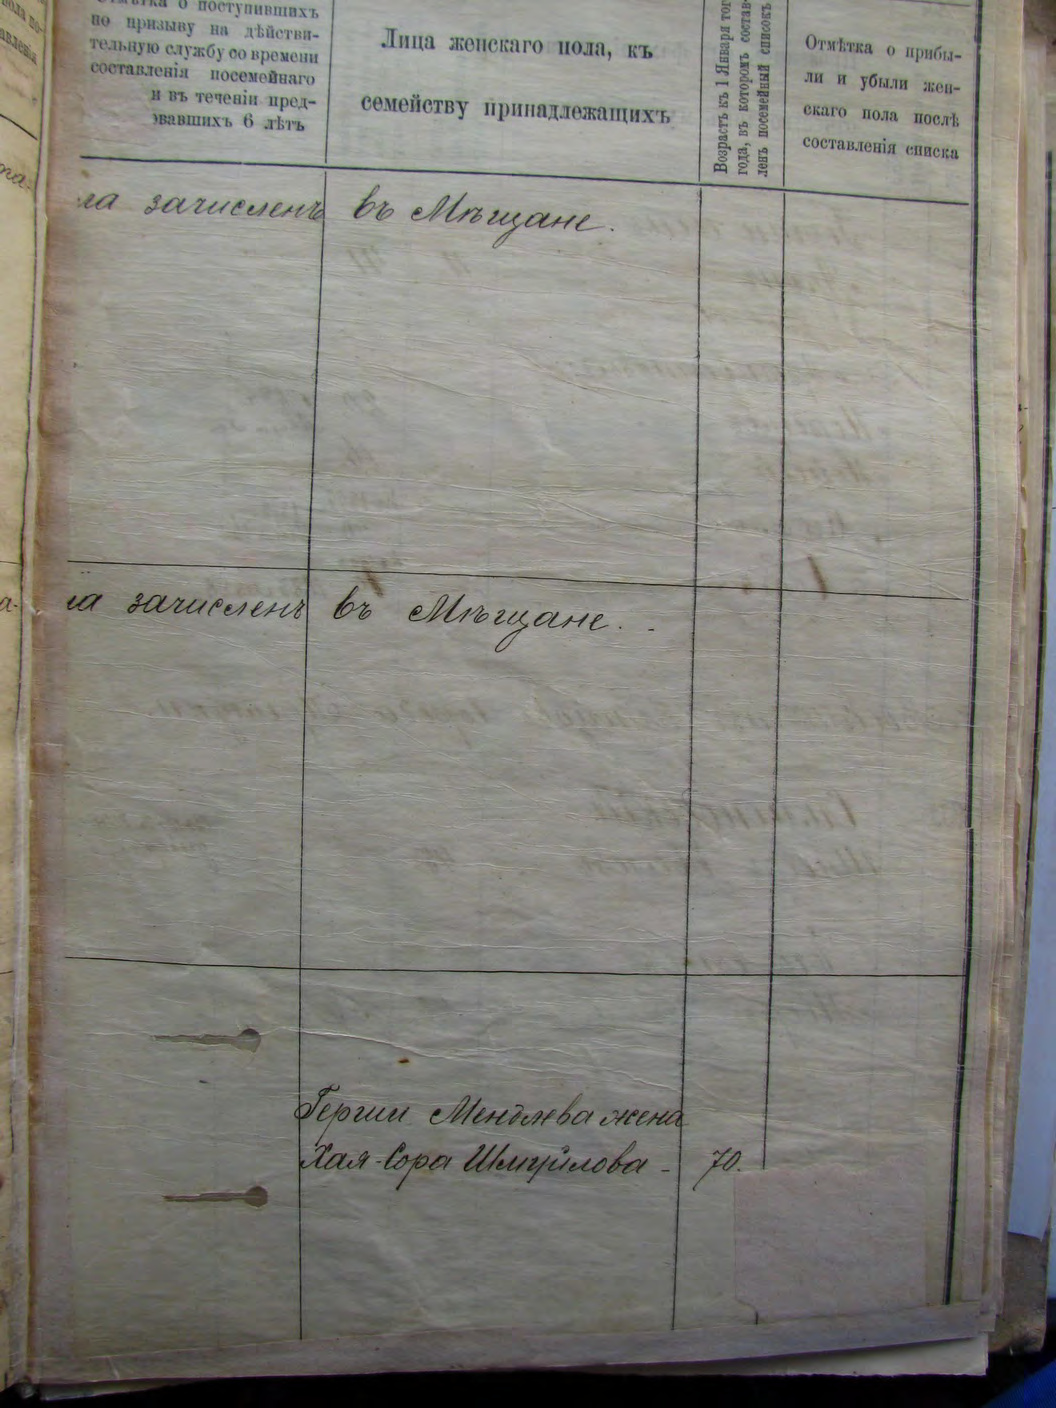 о поступившихъ
по призыву на дѣйстви-
тельную службу со времени
составленія посемейнаго
и въ теченіи пред-
звавшихъ 6 лѣтъ
Лица женскаго пола, къ
семейству принадлежащихъ
Возрастъ къ 1 Января тог
года, въ которомъ состав-
ленъ посемейный списокъ
Отмѣтка о прибы-
ли и убыли жен-
скаго пола послѣ
составленія списка
ла зачисленъ въ Мѣщане.
ла зачисленъ въ Мѣщане.
Герши Менделева жена
Хая-Сора Шмуйлова - 70.